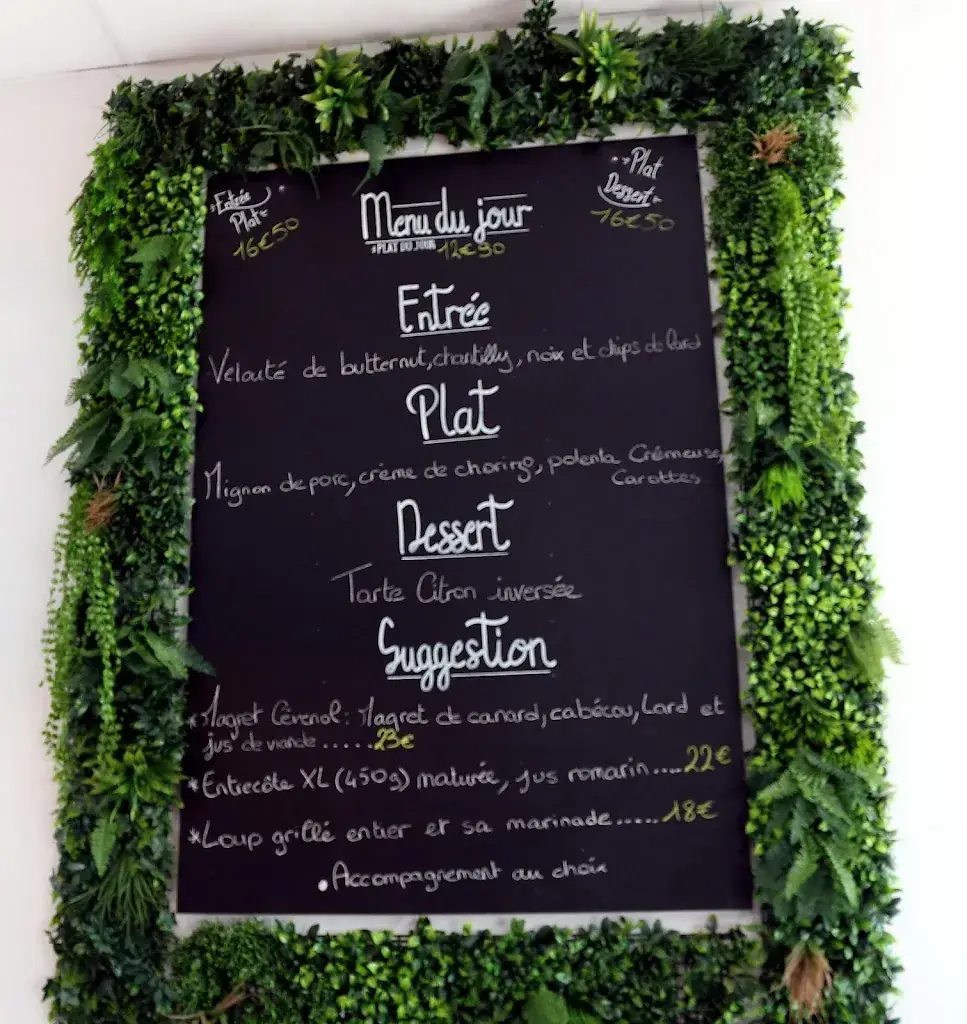 Entrée
Plat
16€50
Menu du jour
*PLAT DU JOUR 12€90
Plat
Dessert
16€50
Entrée
Velouté de butternut, chantilly, noix et chips de lard
Plat
Mignon de porc, crème de chorizo, polenta Crémeuse,
Carottes
Dessert
Tarte Citron inversée
Suggestion
*Magret Cévenol : Magret de canard, cabécou, Lard et
jus de viande.....23€
*Entrecôte XL (450g) maturée, jus romarin....22€
*Loup grillé entier et sa marinade.....18€
• Accompagnement au choix